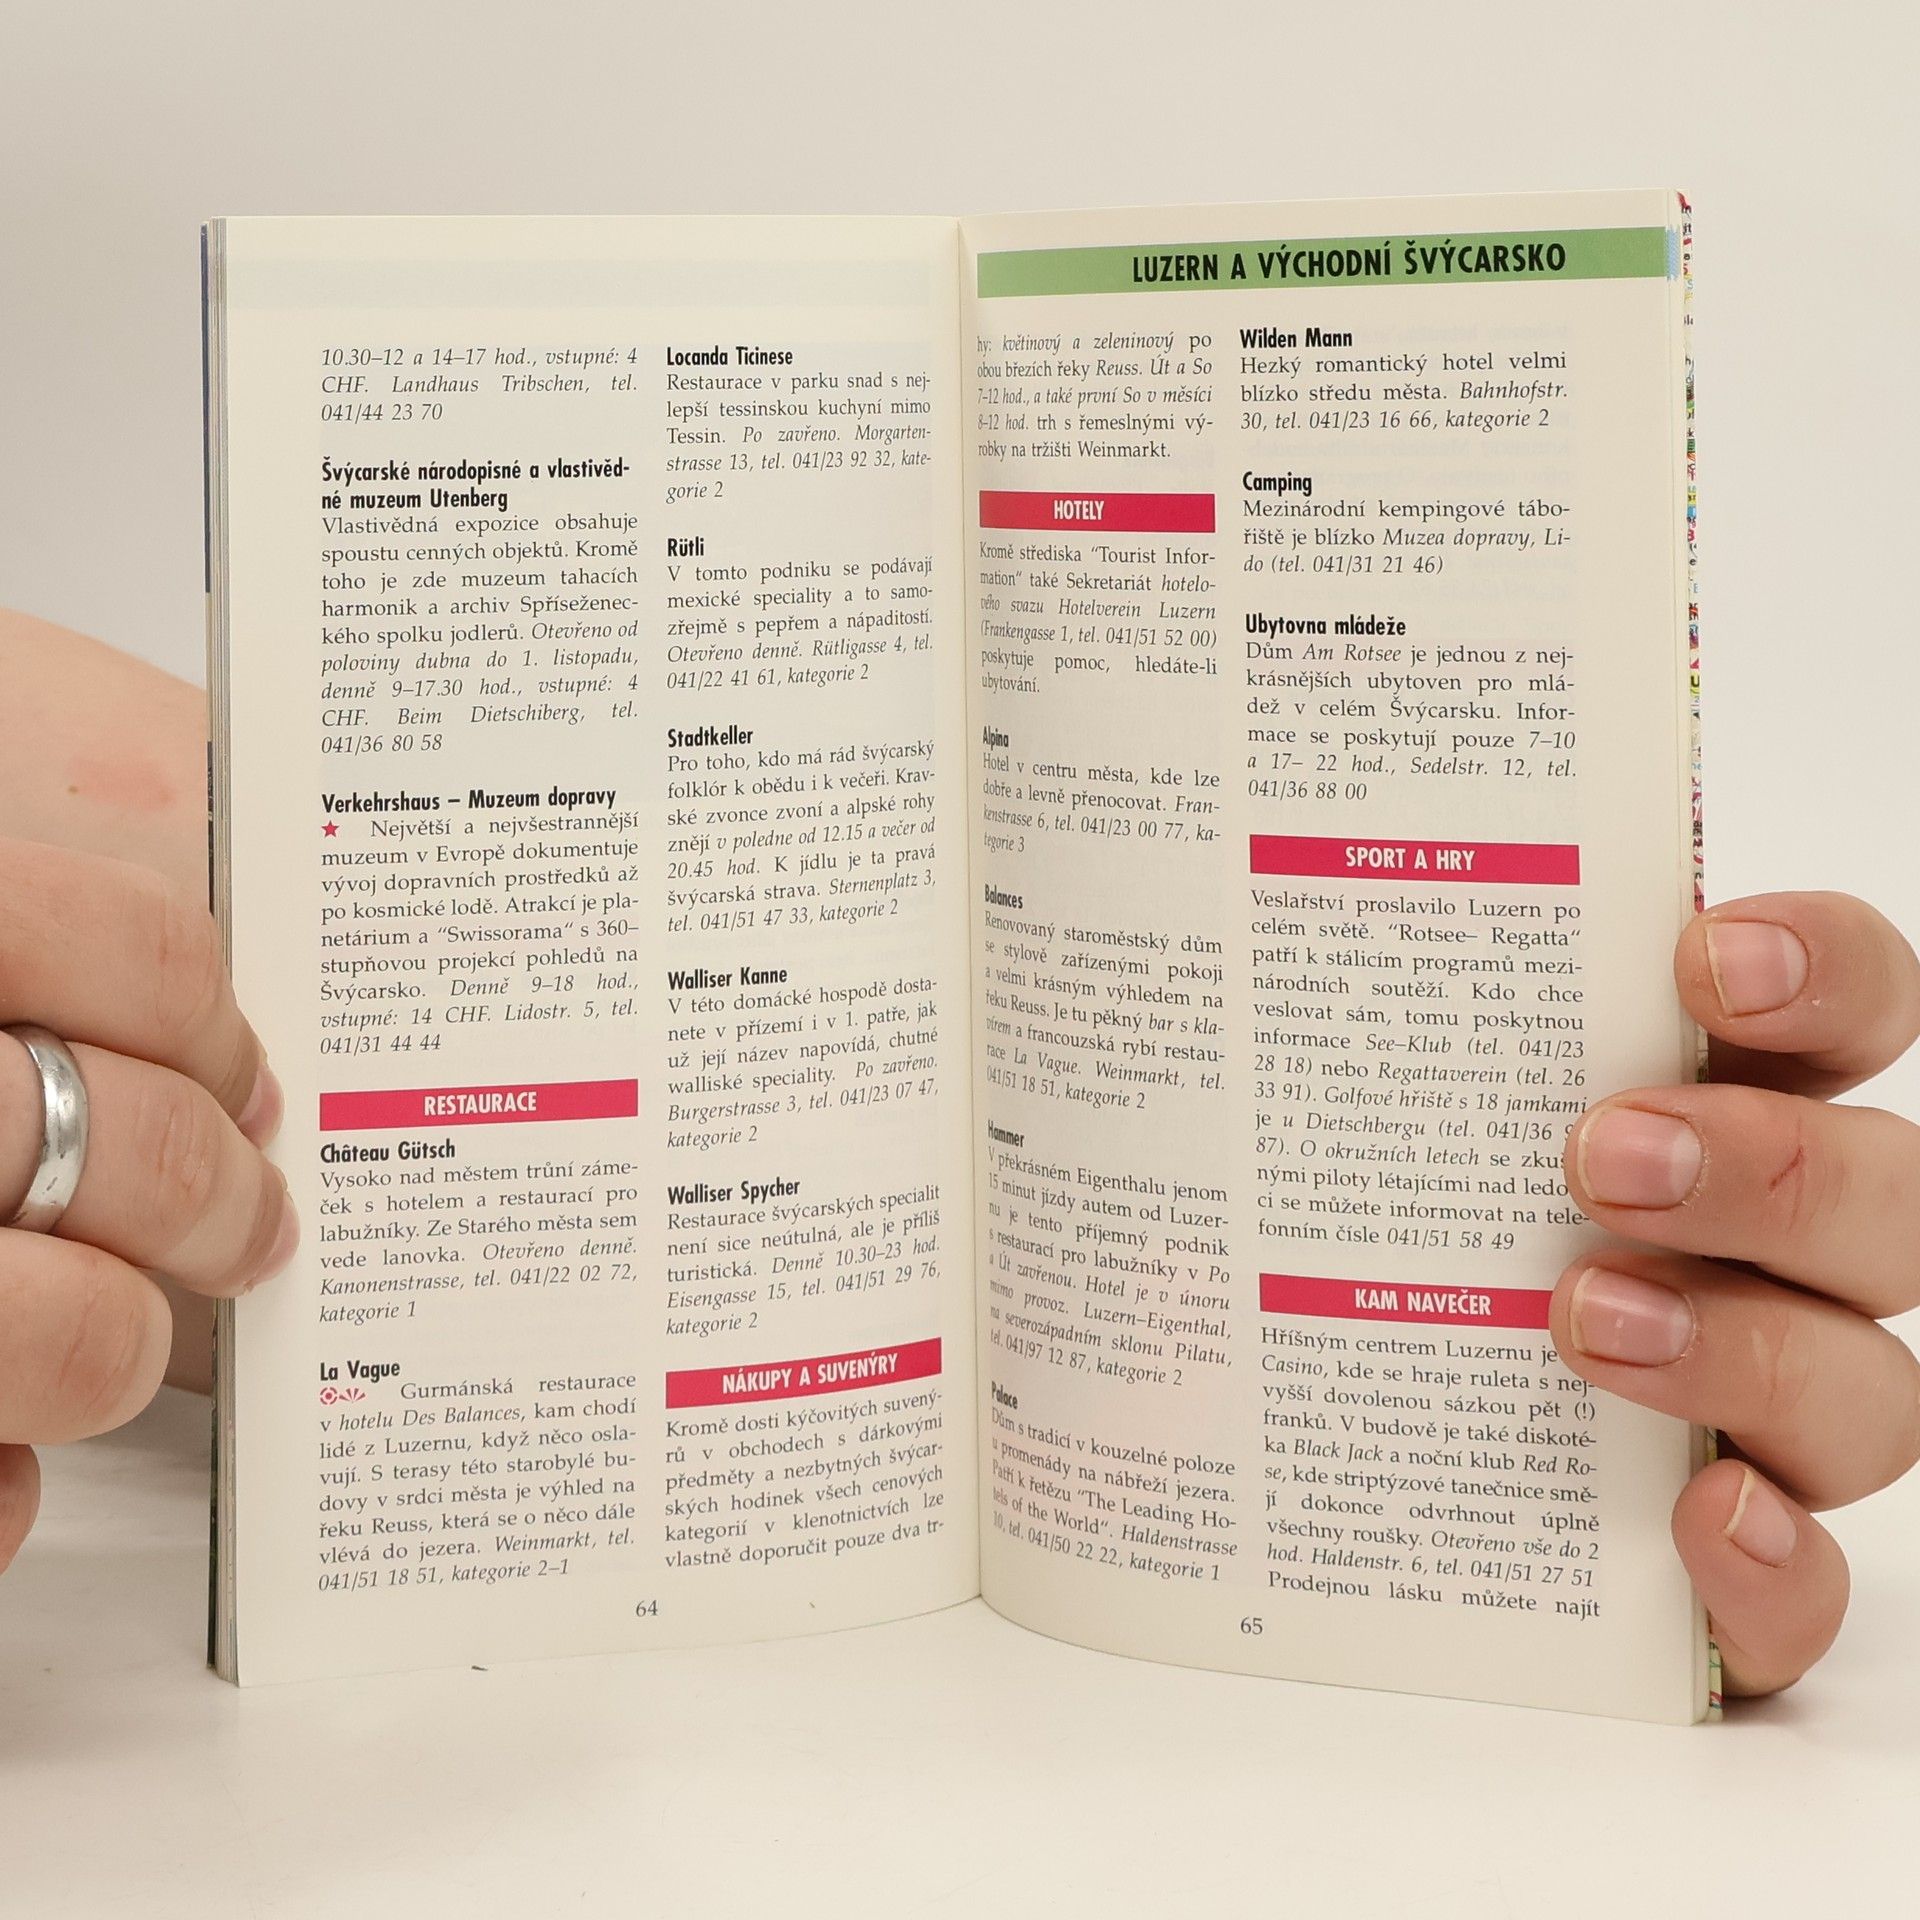 10.30–12 a 14–17 hod., vstupné: 4
CHF. Landhaus Tribschen, tel.
041/44 23 70
Švýcarské národopisné a vlastivěd-
né muzeum Utenberg
Vlastivědná expozice obsahuje
spoustu cenných objektů. Kromě
toho je zde muzeum tahacích
harmonik a archiv Spříseženec-
kého spolku jodlerů. Otevřeno od
poloviny dubna do 1. listopadu,
denně 9–17.30 hod., vstupné: 4
CHF. Beim Dietschiberg, tel.
041/36 80 58
Verkehrshaus – Muzeum dopravy
Největší a nejvšestrannější
muzeum v Evropě dokumentuje
vývoj dopravních prostředků až
po kosmické lodě. Atrakcí je pla-
netárium a "Swissorama" s 360–
stupňovou projekcí pohledů na
Švýcarsko. Denně 9–18 hod.,
vstupné: 14 CHF. Lidostr. 5, tel.
041/31 44 44
RESTAURACE
Château Gütsch
Vysoko nad městem trůní záme-
ček s hotelem a restaurací pro
labužníky. Ze Starého města sem
vede lanovka. Otevřeno denně.
Kanonenstrasse, tel. 041/22 02 72,
kategorie 1
La Vague
Gurmánská restaurace
v hotelu Des Balances, kam chodí
lidé z Luzernu, když něco osla-
vují. S terasy této starobylé bu-
dovy v srdci města je výhled na
řeku Reuss, která se o něco dále
vlévá do jezera. Weinmarkt, tel.
041/51 18 51, kategorie 2–1
Locanda Ticinese
Restaurace v parku snad s nej-
lepší tessinskou kuchyní mimo
Tessin. Po zavřeno. Morgarten-
strasse 13, tel. 041/23 92 32, kate-
gorie 2
Rütli
V tomto podniku se podávají
mexické speciality a to samo-
zřejmě s pepřem a nápaditostí.
Otevřeno denně. Rütligasse 4, tel.
041/22 41 61, kategorie 2
Stadtkeller
Pro toho, kdo má rád švýcarský
folklór k obědu i k večeři. Krav-
ské zvonce zvoní a alpské rohy
znějí v poledne od 12.15 a večer od
20.45 hod. K jídlu je ta pravá
švýcarská strava. Sternenplatz 3,
tel. 041/51 47 33, kategorie 2
Walliser Kanne
V této domácké hospodě dosta-
nete v přízemí i v 1. patře, jak
už její název napovídá, chutné
walliské speciality. Po zavřeno.
Burgerstrasse 3, tel. 041/23 07 47,
kategorie 2
Walliser Spycher
Restaurace švýcarských specialit
není sice neútulná, ale je příliš
turistická. Denně 10.30–23 hod.
Eisengasse 15, tel. 041/51 29 76,
kategorie 2
NÁKUPY A SUVENÝRY
Kromě dosti kýčovitých suvený-
rů v obchodech s dárkovými
předměty a nezbytných švýcar-
ských hodinek všech cenových
kategorií v klenotnictvích lze
vlastně doporučit pouze dva tr-
64
LUZERN A VÝCHODNÍ ŠVÝCARSKO
hy: květinový a zeleninový po
obou březích řeky Reuss. Út a So
7–12 hod., a také první So v měsíci
8–12 hod. trh s řemeslnými vý-
robky na tržišti Weinmarkt.
HOTELY
Kromě střediska "Tourist Infor-
mation" také Sekretariát hotelo-
vého svazu Hotelverein Luzern
(Frankengasse 1, tel. 041/51 52 00)
poskytuje pomoc, hledáte-li
ubytování.
Alpina
Hotel v centru města, kde lze
dobře a levně přenocovat. Fran-
kenstrasse 6, tel. 041/23 00 77, ka-
tegorie 3
Balances
Renovovaný staroměstský dům
se stylově zařízenými pokoji
a velmi krásným výhledem na
řeku Reuss. Je tu pěkný bar s kla-
vírem a francouzská rybí restau-
race La Vague. Weinmarkt, tel.
041/51 18 51, kategorie 2
Hammer
V překrásném Eigenthalu jenom
15 minut jízdy autem od Luzer-
nu je tento příjemný podnik
s restaurací pro labužníky v Po
a Út zavřenou. Hotel je v únoru
mimo provoz. Luzern–Eigenthal,
na severozápadním sklonu Pilatu,
tel. 041/97 12 87, kategorie 2
Palace
Dům s tradicí v kouzelné poloze
u promenády na nábřeží jezera.
Patří k řetězu "The Leading Ho-
tels of the World". Haldenstrasse
10, tel. 041/50 22 22, kategorie 1
Wilden Mann
Hezký romantický hotel velmi
blízko středu města. Bahnhofstr.
30, tel. 041/23 16 66, kategorie 2
Camping
Mezinárodní kempingové tábo-
řiště je blízko Muzea dopravy, Li-
do (tel. 041/31 21 46)
Ubytovna mládeže
Dům Am Rotsee je jednou z nej-
krásnějších ubytoven pro mlá-
dež v celém Švýcarsku. Infor-
mace se poskytují pouze 7–10
a 17– 22 hod., Sedelstr. 12, tel.
041/36 88 00
SPORT A HRY
Veslařství proslavilo Luzern po
celém světě. "Rotsee– Regatta"
patří k stálicím programů mezi-
národních soutěží. Kdo chce
veslovat sám, tomu poskytnou
informace See–Klub (tel. 041/23
28 18) nebo Regattaverein (tel. 26
33 91). Golfové hřiště s 18 jamkami
je u Dietschbergu (tel. 041/36
87). O okružních letech se zkuš
nými piloty létajícími nad ledo
ci se můžete informovat na tele-
fonním čísle 041/51 58 49
KAM NAVEČER
Hříšným centrem Luzernu je
Casino, kde se hraje ruleta s nej-
vyšší dovolenou sázkou pět (!)
franků. V budově je také diskoté-
ka Black Jack a noční klub Red Ro-
se, kde striptýzové tanečnice smě-
jí dokonce odvrhnout úplně
všechny roušky. Otevřeno vše do 2
hod. Haldenstr. 6, tel. 041/51 27 51
Prodejnou lásku můžete najít
65